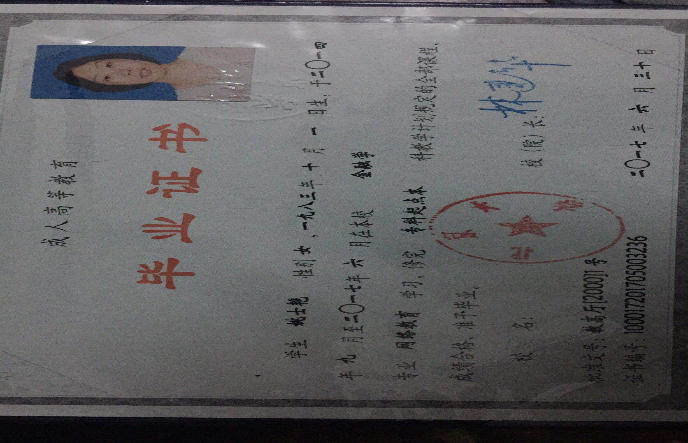 成人高等教育
毕业证书
学生 姚士艳 性别 女 、一九八三年 十 月 一 日生，于二〇一四
年 九 月至二〇一七年 六 月在本校 金融学
专业 网络教育 学习，修完 专科起点本 科教学计划规定的全部课程，
成绩合格，准予毕业。
校 名： 校（院）长：林建华
批准文号：教高厅[2000]1 号
证书编号：100017201705003236 二〇一七年 六 月三十日